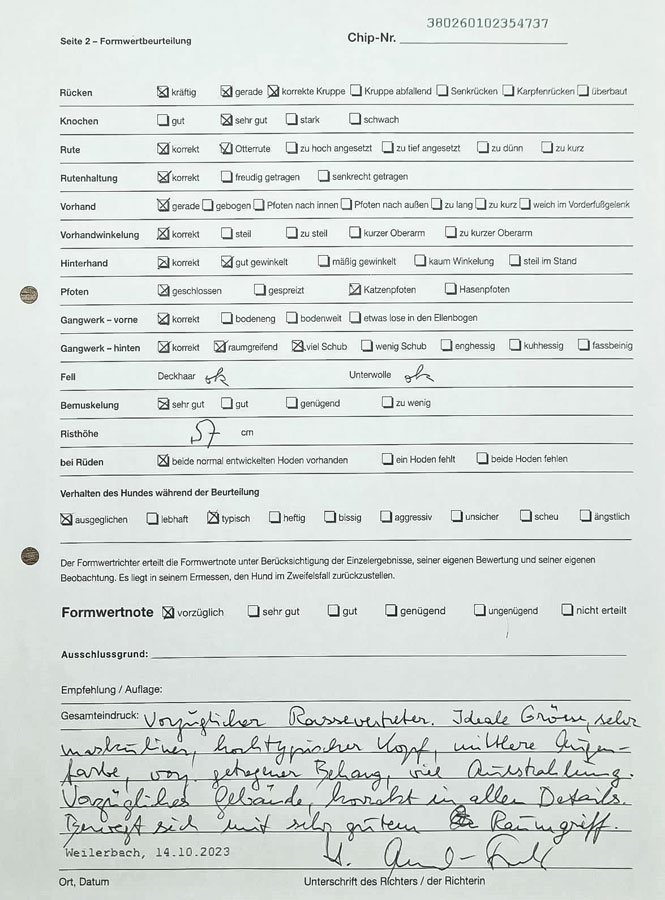 380260102354737
Seite 2 – Formwertbeurteilung Chip-Nr.
Rücken ☒ kräftig ☒ gerade ☒ korrekte Kruppe ☐ Kruppe abfallend ☐ Senkrücken ☐ Karpfenrücken ☐ überbaut
Knochen ☐ gut ☒ sehr gut ☐ stark ☐ schwach
Rute ☒ korrekt ☒ Otterrute ☐ zu hoch angesetzt ☐ zu tief angesetzt ☐ zu dünn ☐ zu kurz
Rutenhaltung ☒ korrekt ☐ freudig getragen ☐ senkrecht getragen
Vorhand ☒ gerade ☐ gebogen ☐ Pfoten nach innen ☐ Pfoten nach außen ☐ zu lang ☐ zu kurz ☐ weich im Vorderfußgelenk
Vorhandwinkelung ☒ korrekt ☐ steil ☐ zu steil ☐ kurzer Oberarm ☐ zu kurzer Oberarm
Hinterhand ☒ korrekt ☒ gut gewinkelt ☐ mäßig gewinkelt ☐ kaum Winkelung ☐ steil im Stand
Pfoten ☒ geschlossen ☐ gespreizt ☒ Katzenpfoten ☐ Hasenpfoten
Gangwerk – vorne ☒ korrekt ☐ bodeneng ☐ bodenweit ☐ etwas lose in den Ellenbogen
Gangwerk – hinten ☒ korrekt ☒ raumgreifend ☒ viel Schub ☐ wenig Schub ☐ enghessig ☐ kuhhessig ☐ fassbeinig
Fell Deckhaar ok Unterwolle ok
Bemuskelung ☒ sehr gut ☐ gut ☐ genügend ☐ zu wenig
Risthöhe 57 cm
bei Rüden ☒ beide normal entwickelten Hoden vorhanden ☐ ein Hoden fehlt ☐ beide Hoden fehlen
Verhalten des Hundes während der Beurteilung
☒ ausgeglichen ☐ lebhaft ☒ typisch ☐ heftig ☐ bissig ☐ aggressiv ☐ unsicher ☐ scheu ☐ ängstlich
Der Formwertrichter erteilt die Formwertnote unter Berücksichtigung der Einzelergebnisse, seiner eigenen Bewertung und seiner eigenen
Beobachtung. Es liegt in seinem Ermessen, den Hund im Zweifelsfall zurückzustellen.
Formwertnote ☒ vorzüglich ☐ sehr gut ☐ gut ☐ genügend ☐ ungenügend ☐ nicht erteilt
Ausschlussgrund:
Empfehlung / Auflage:
Gesamteindruck: Vorzüglicher Rassevertreter. Ideale Grösse, sehr
maskuliner, hochtypischer Kopf, mittlere Augen-
farbe, vorz. getragener Behang, viel Ausstrahlung.
Vorzügliches Gebäude, korrekt in allen Details.
Bewegt sich mit sehr gutem Raumgriff.
Weilerbach, 14.10.2023
Ort, Datum Unterschrift des Richters / der Richterin